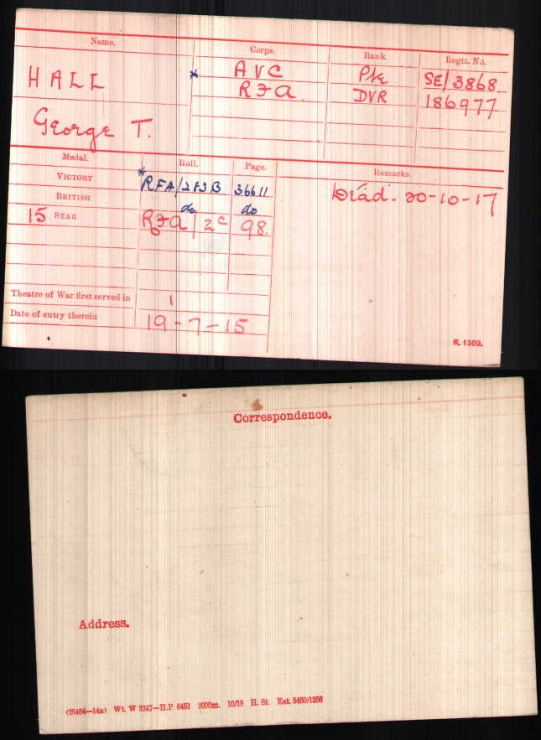 Name. Corps. Rank. Regtl. No.
HALL * AVC Pte SE/3868
RFA. DVR 186977
George T.
Medal. Roll. Page. Remarks.
VICTORY *RFA/213B 36611 Dead. 20-10-17
BRITISH do do
15 STAR RFA/2C 98
Theatre of War first served in 1
Date of entry therein 19-7-15
K. 1380.
Correspondence.
Address.
Wt. W 5347—H.P. 6451 2000m. 10/19 H. St.